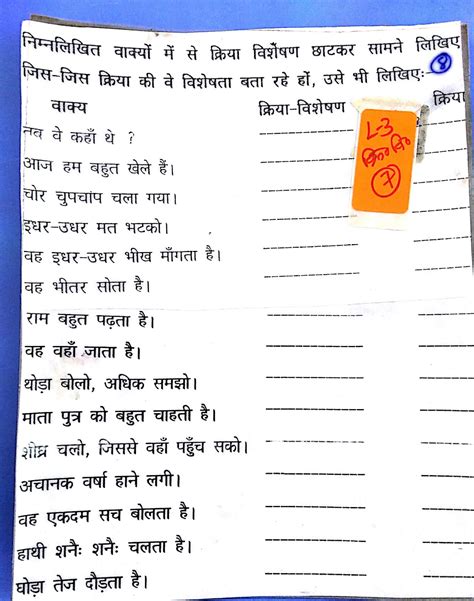 निम्नलिखित वाक्यों में से क्रिया विशेषण छाटकर सामने लिखिए
जिस-जिस क्रिया की वे विशेषता बता रहे हों, उसे भी लिखिए:- 8
वाक्य क्रिया-विशेषण क्रिया
तब वे कहाँ थे ?
L-3
आज हम बहुत खेले हैं।
7
चोर चुपचांप चला गया।
इधर-उधर मत भटको।
वह इधर-उधर भीख माँगता है।
वह भीतर सोता है।
राम बहुत पढ़ता है।
वह वहाँ जाता है।
थोड़ा बोलो, अधिक समझो।
माता पुत्र को बहुत चाहती है।
शीघ्र चलो, जिससे वहाँ पहुँच सको।
अचानक वर्षा हाने लगी।
वह एकदम सच बोलता है।
हाथी शनैः शनैः चलता है।
घोड़ा तेज दौड़ता है।